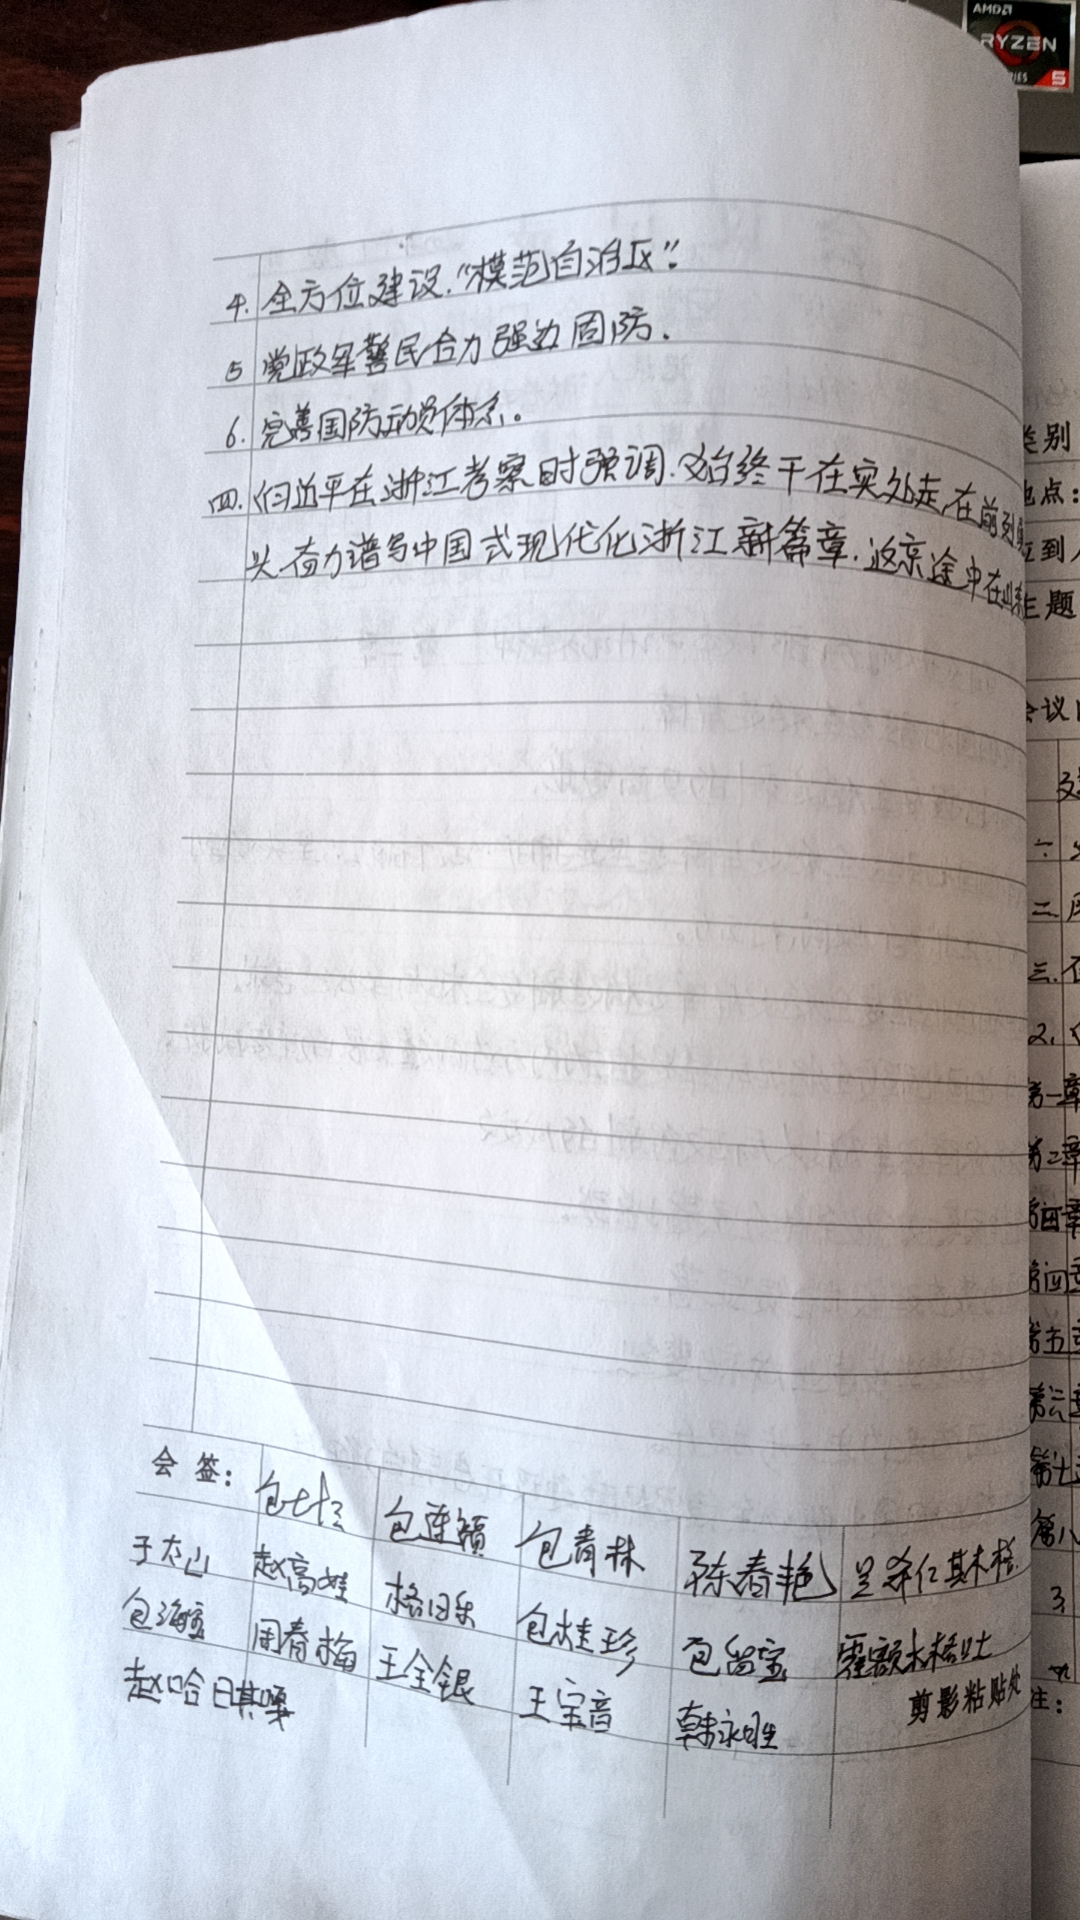 AMD
RYZEN
5
4. 全方位建设."模范自治区".
5 党政军警民合力强边固防.
6. 完善国防动员体系。
四. 《习近平在浙江考察时强调.始终干在实处走在前列勇
头.奋力谱写中国式现代化浙江新篇章.返京途中在山东
会 签:
包七十三 包连锁 包青林 陈春艳
于大山 赵高娃 格日乐 包桂珍 包留宝
包海宝 周春梅 王全银 王宝音 韩永胜
赵哈日其嘎
剪影粘贴处
类别
地点:
应到人
主题
会议
一.
二
三.
2.
第一章
第二章
第四章
第五
第六
第七
第八
3.
注: